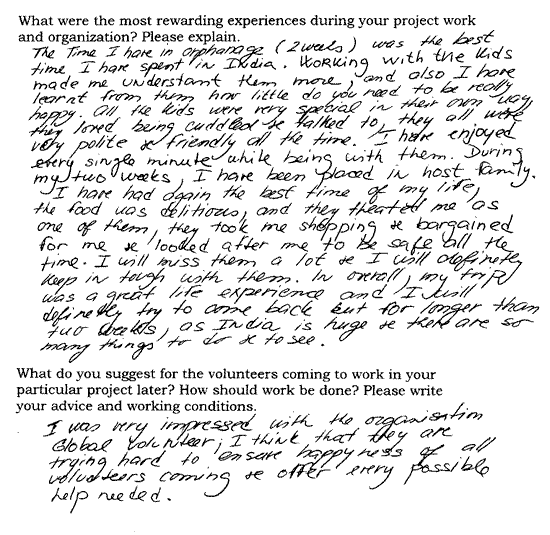 What were the most rewarding experiences during your project work
and organization? Please explain.
The Time I have in orphanage (2 weeks) was the best
time I have spent in India. Working with the kids
made me understant them more, and also I have
learnt from them how little do you need to be really
happy. All the kids were very special in their own way,
they loved being cuddled & talked to, they all were
very polite & friendly all the time. I have enjoyed
every single minute while being with them. During
my two weeks, I have been placed in host family.
I have had again the best time of my life,
the food was delitious, and they theated me as
one of them, they took me shopping & bargained
for me & looked after me to be safe all the
time. I will miss them a lot & I will definetly
keep in tough with them. In overall, my trip
was a great life experience and I will
definetly try to come back but for longer than
two weeks, as India is huge & there are so
many things to do & to see.
What do you suggest for the volunteers coming to work in your
particular project later? How should work be done? Please write
your advice and working conditions.
I was very impressed with the organisation
Global Volunteer; I think that they are
trying hard to ensure happyness of all
volunteers coming & offer every possible
help needed.